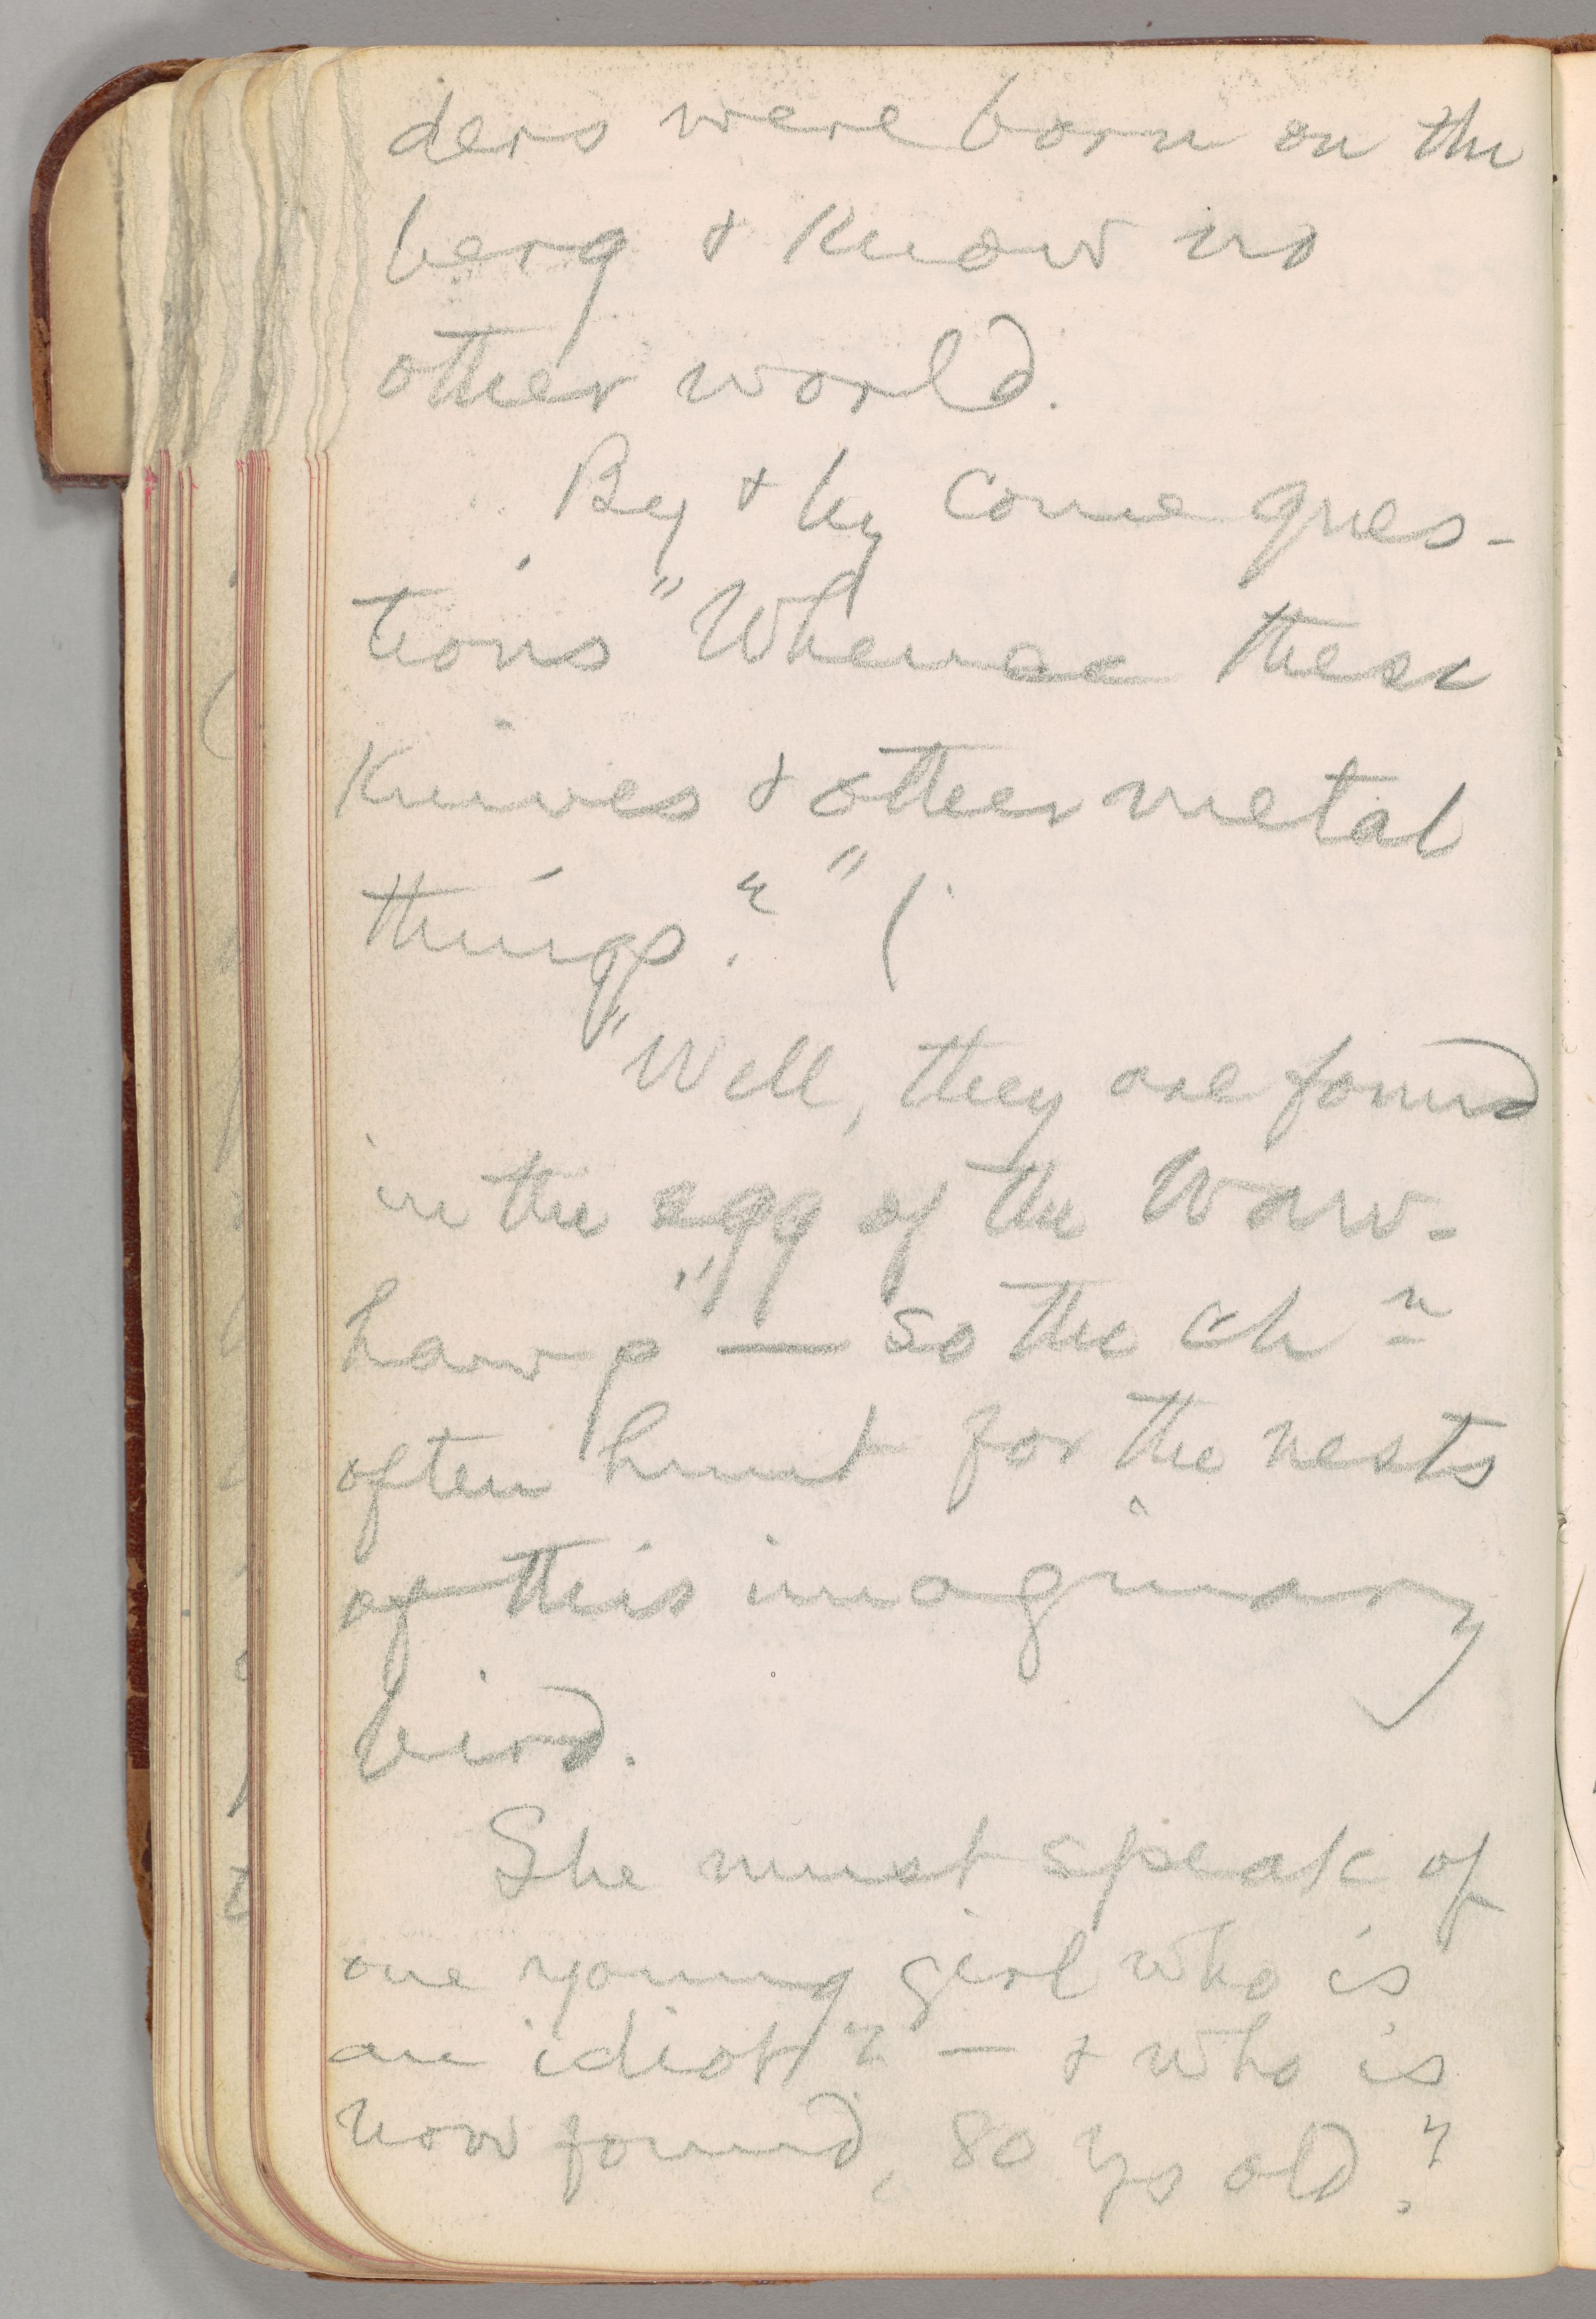 ders were born on the
berg & know no
other world.
By & by come ques-
tions "Whence these
knives & other metal
things?" (
"Well, they are found
in the egg of the Waw-
hawp" — so the chn
often hunt for the nests
of this imaginary
bird.
She must speak of
one young girl who is
an idiot? — & who is
now found, 80 ys old?